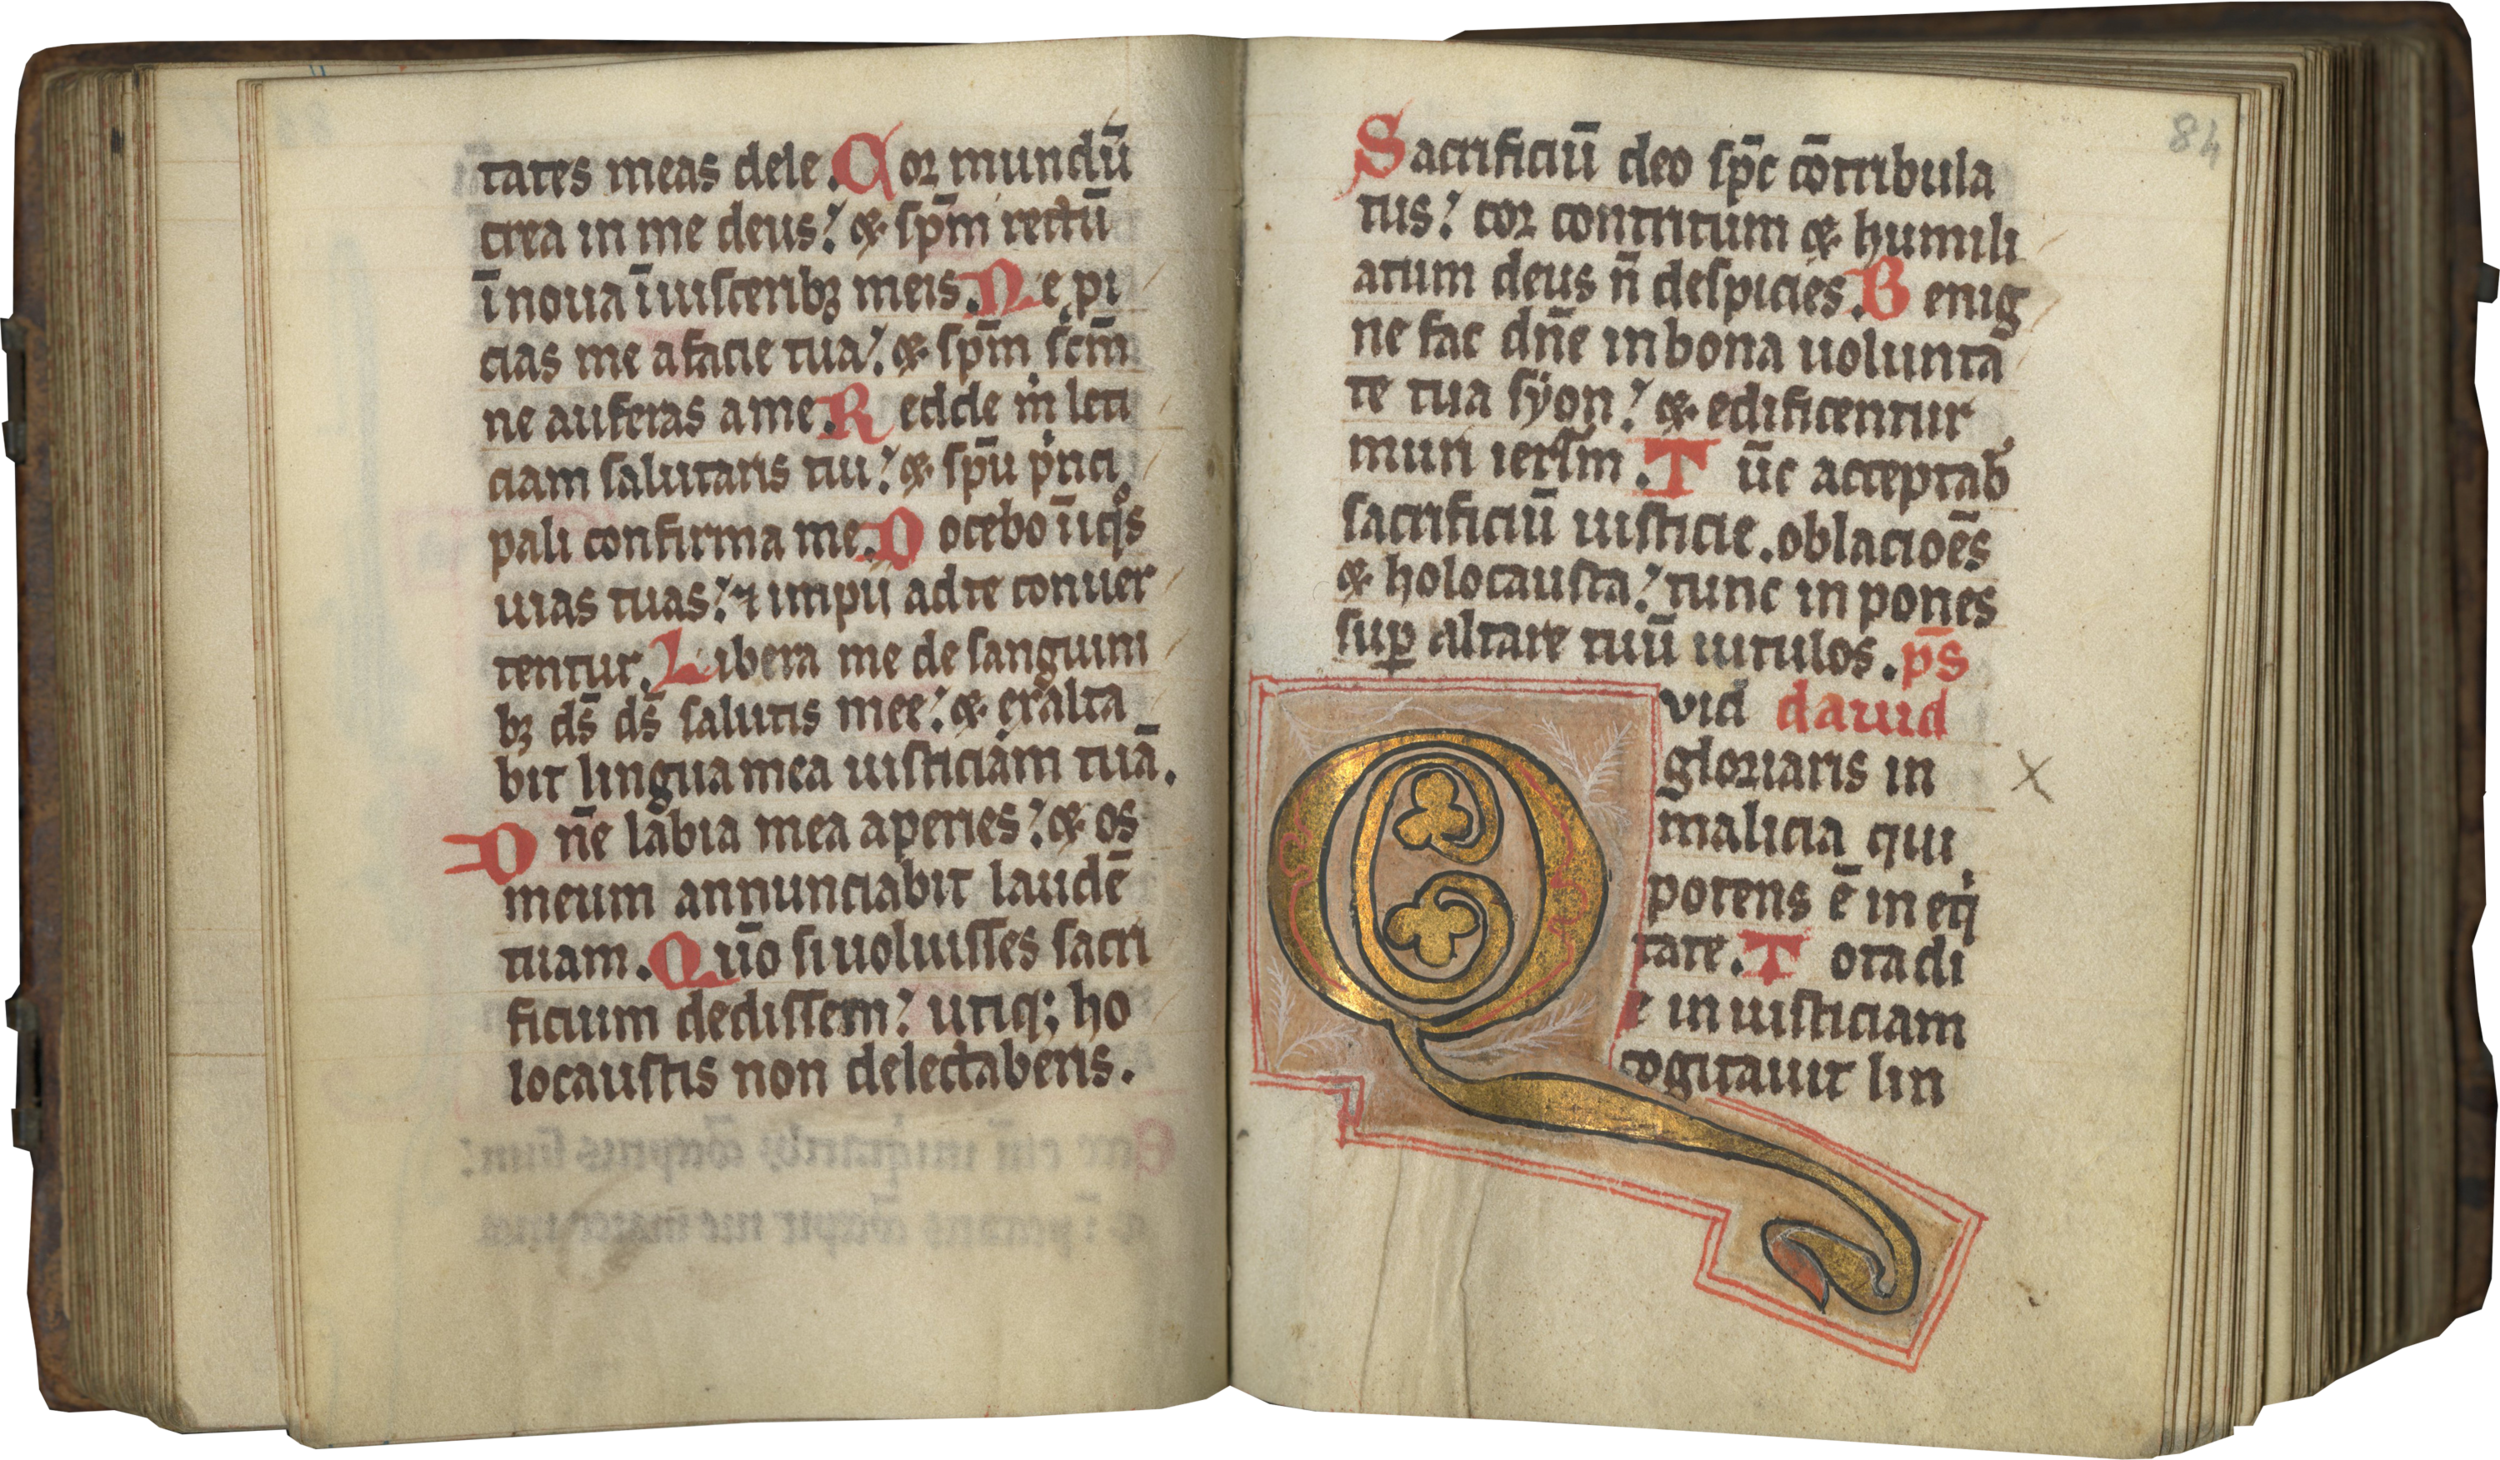 tates meas dele. Cor mundū
crea in me deus: & sp̄m rectū
īnoua ī uisceribꝫ meis. Ne pi
cias me a facie tua: & sp̄m sc̄m
ne auferas a me. Redde ṁ leti
ciam salutaris tui: & sp̄u pͥnci
pali confirma me. Docebo īiqͦs
uias tuas: ⁊ impii ad te conuer
tentur. Libera me de sanguini
bꝫ ds̄ ds̄ salutis mee: & exalta
bit lingua mea iusticiam tuā.
Dn̄e labia mea aperies: & os
meum annunciabit laudē
tuam. Qūo si uoluisses sacri
ficium dedissem: utiqꝫ ho
locaustis non delectaberis.
84
Sacrificiū deo sp̄c cōtribula
tus: cor contritum & humili
atum deus n̄ despicies. Benig
ne fac dn̄e in bona uolunta
te tua syon: & edificentur
muri ierl̄m. Tūc acceptab̓
sacrificiū iusticie. oblacioēs
& holocausta: tunc inpones
suꝑ altare tuū uitulos. p̄s
Qvid dauid
gloriaris in
malicia qui
potens ē in iniqͥ
tate. Tota di
e iniusticiam
cogitauit lin